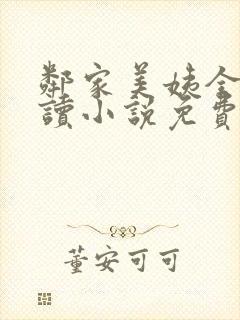 鄰家美姨全
讀小說免費
董安可可